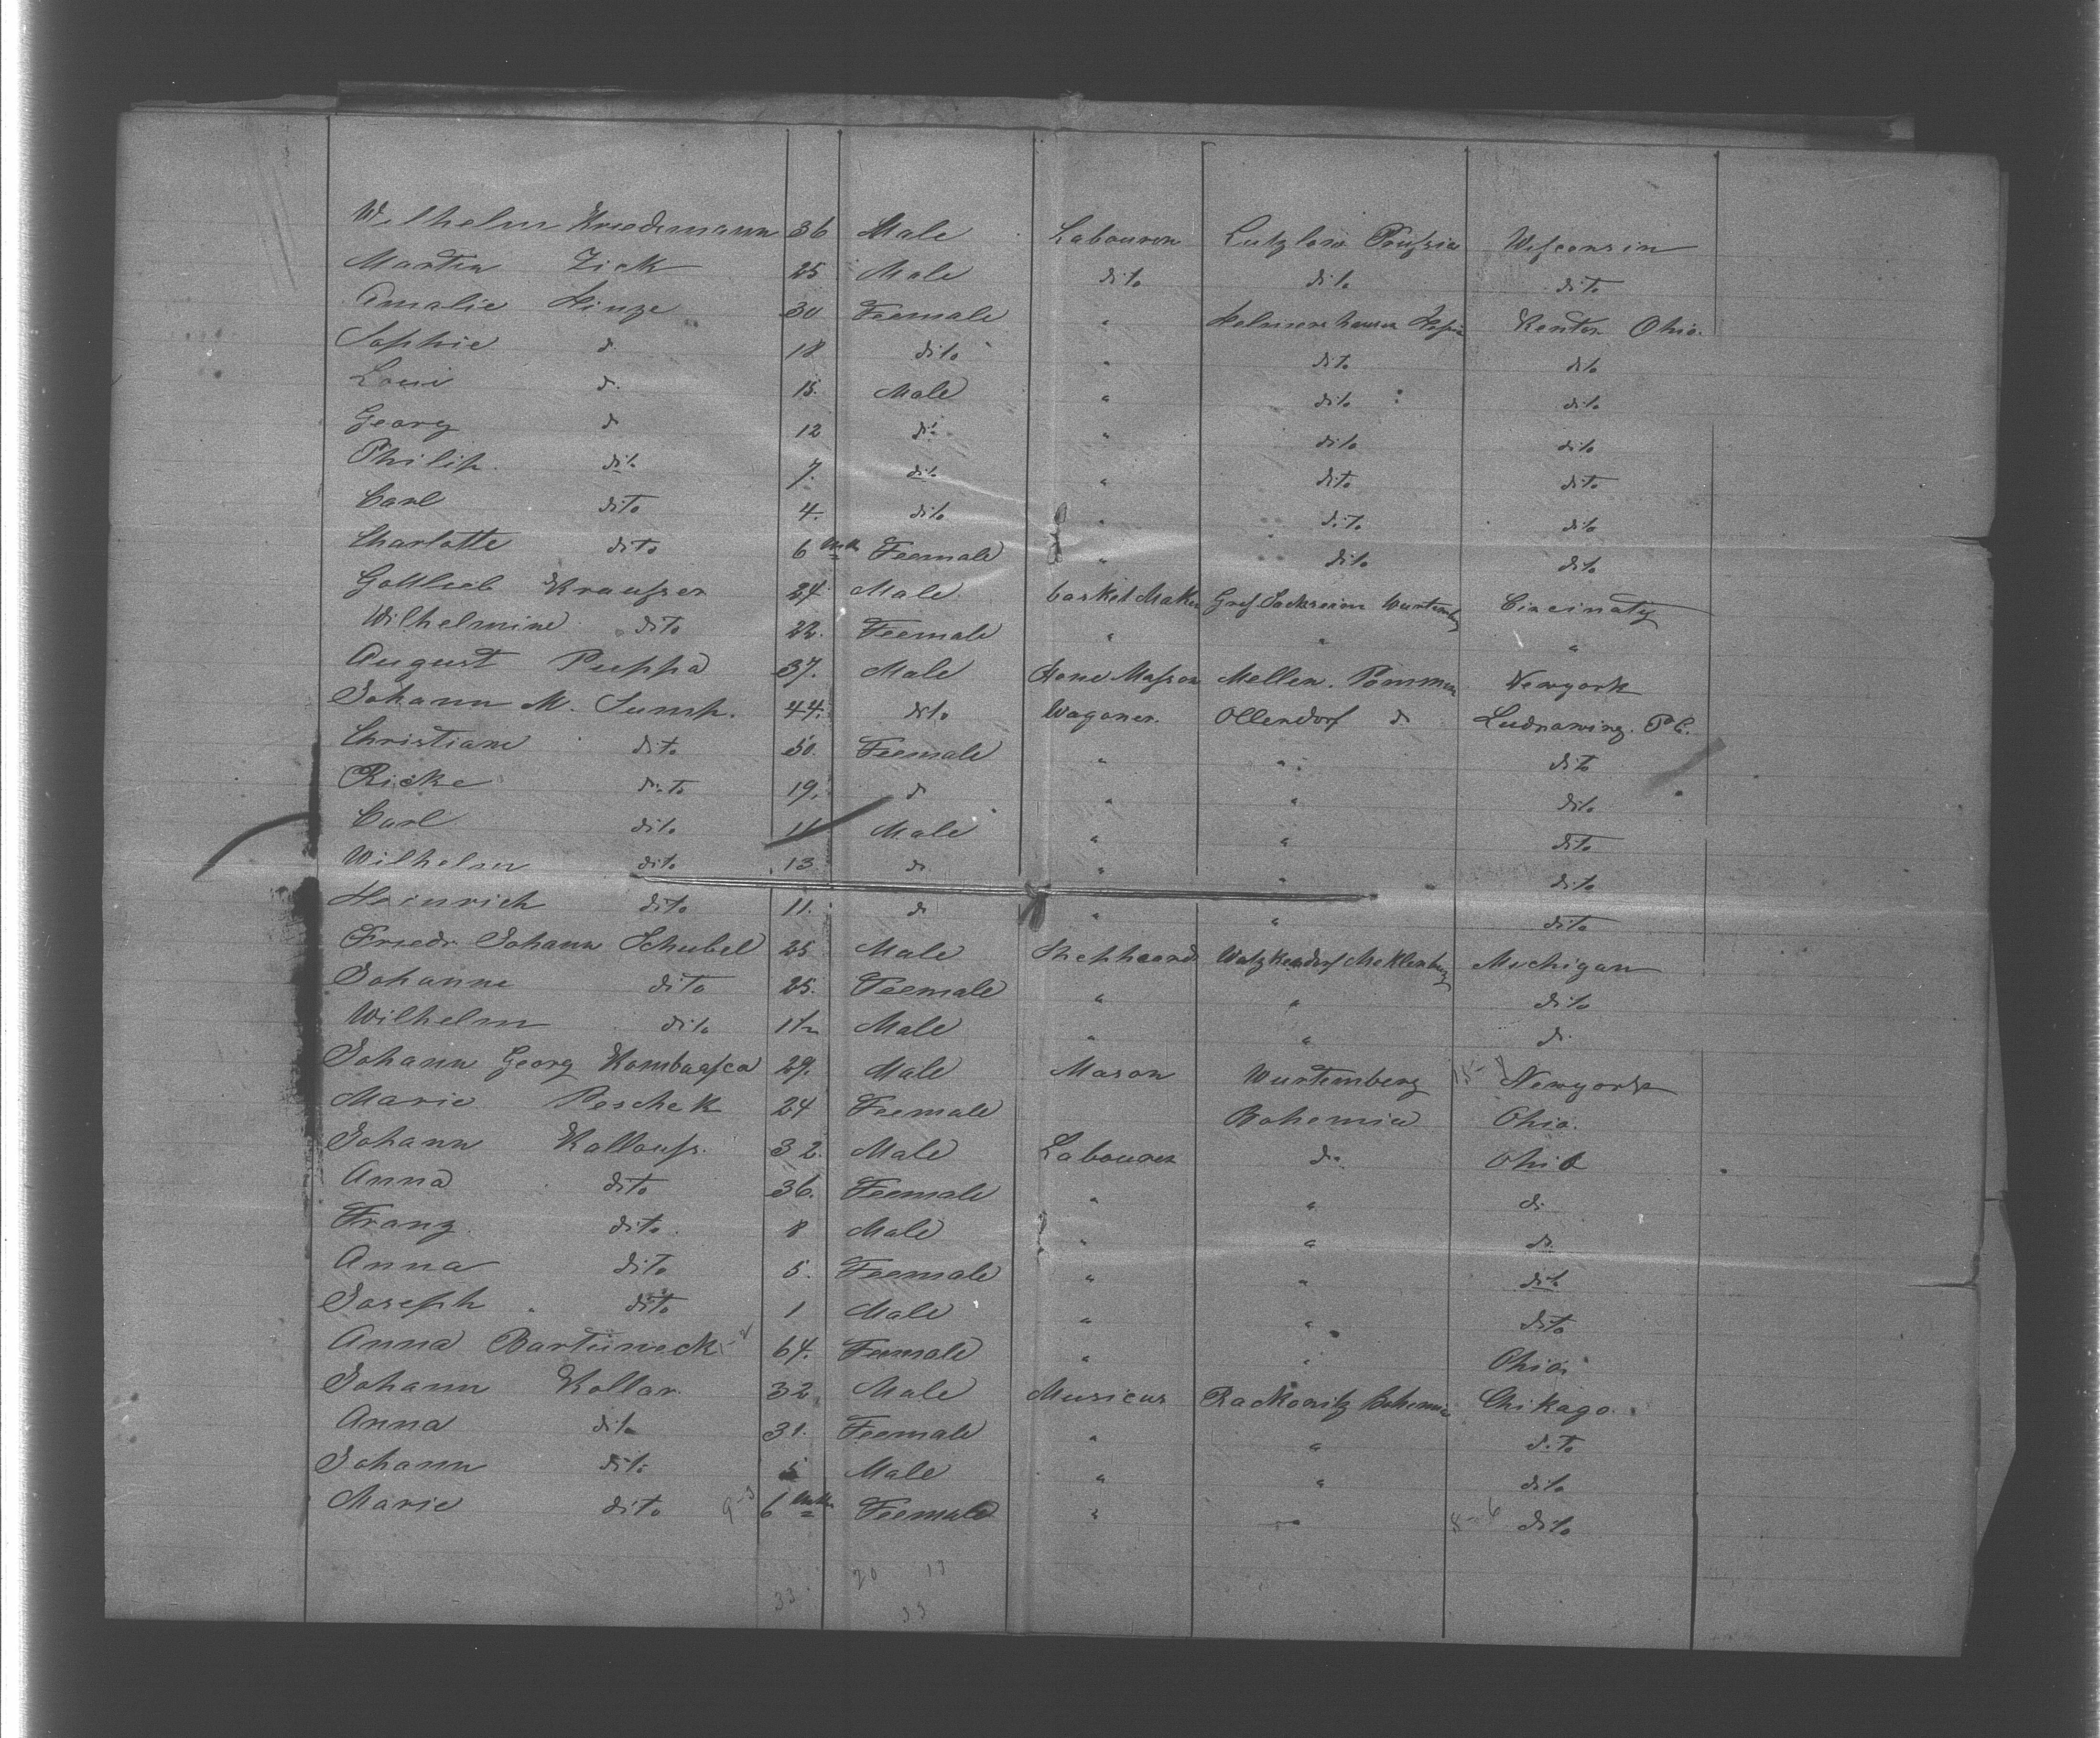 Wilhelm Kriedemann 36 Male Labourer Lutzlow Preussia Wisconsin
Martin Zick 25 Male dito dito dito
Amalie Hinze 30 Feemale " Helmershausen Hessia Kenton Ohio.
Sophie d. 18 dito " dito dito
Loui d. 15. Male " dito dito
Georg d 12 dito " dito dito
Philip. dito 7. dito " dito dito
Carl dito 4. dito " dito dito
Charlotte dito 6 Feemale " dito dito
Gottlieb Kraußer 24 Male basket Maker Wurtemberg Cincinaty
Wilhelmine dito 22. Feemale " " "
August Puppa 37. Male Mellen. Pommern Newyork
Johann M. Sump. 44. dito Wagoner. Ollendorf d
Christiane dito 50. Feemale " " dito
Ricke dito 19. d " " dito
Carl dito Male " " dito
Wilhelm dito 13 d " " dito
Heinrich dito 11. d " " dito
Friedr. Johann Schubel 25 Male Shephaard Watzkendorf Meklenburg Michigan
Johanne dito 25. Feemale " " dito
Wilhelm dito 1½ Male " " d.
Johann Georg 29. Male Mason Wurtemberg 15- Newyork
Marie Peschek 24 Feemale Bohemia Ohio.
Johann Kallouss. 32. Male Labourer do. Ohio
Anna dito 36. Feemale " " d.
Franz. dito. 8 Male " " do.
Anna dito 5. Feemale " " dito
Joseph. dito 1 Male " " dito
Anna Bartuneck 64. Feemale " " Ohio.
Johann Kollar. 32. Male Musicus Rackonitz Bohemia Chikago.
Anna dito 31. Feemale " " dito
Johann dito 5 Male " " dito
Marie dito 9-3 6 Feemale " " 8-6 dito
20 13
33 33